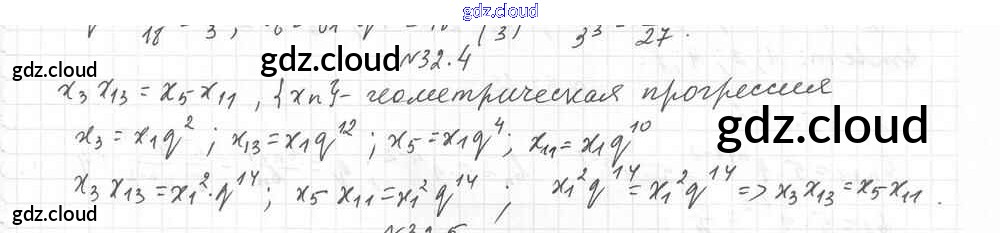 gdz.cloud
18 3 3³ 27.
gdz.cloud
gdz.cloud
№32.4
x₃x₁₃ = x₅x₁₁, {xn}- геометрическая прогрессия
gdz.cloud
x₃ = x₁q²; x₁₃ = x₁q¹²; x₅ = x₁q⁴; x₁₁ = x₁q¹⁰
gdz.cloud
x₃x₁₃ = x₁²·q¹⁴; x₅x₁₁ = x₁²q¹⁴; x₁²q¹⁴ = x₁²q¹⁴ => x₃x₁₃ = x₅x₁₁.
gdz.cloud
№32.5